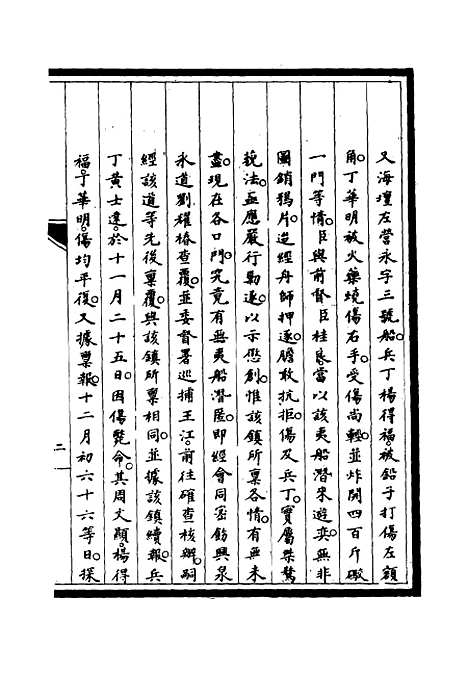 又海壇左營永字三號船兵丁楊得福。被鉛子打傷左額
角。丁華明被火藥燒傷右手。受傷尚輕。並炸開四百斤礮
一門等情。臣與前督臣桂良當以該夷船潛來遊奕。無非
圖銷鴉片。迨經舟師押逐。膽敢抗拒。傷及兵丁。實屬桀驁
藐法。亟應嚴行勦逐。以示懲創。惟該鎮所稟各情。有無未
盡。現在各口門究竟有無夷船潛匿。即經會同密飭興泉
永道劉耀椿查覆。並委督署巡捕王江。前往確查核辦。嗣
經該道等先後稟覆。與該鎮所稟相同。並據該鎮續報。兵
丁黃士達。於十一月二十五日。因傷斃命。其周文顯。楊得
福。丁華明。傷均平復。又據稟報。十二月初六十六等日。探
二